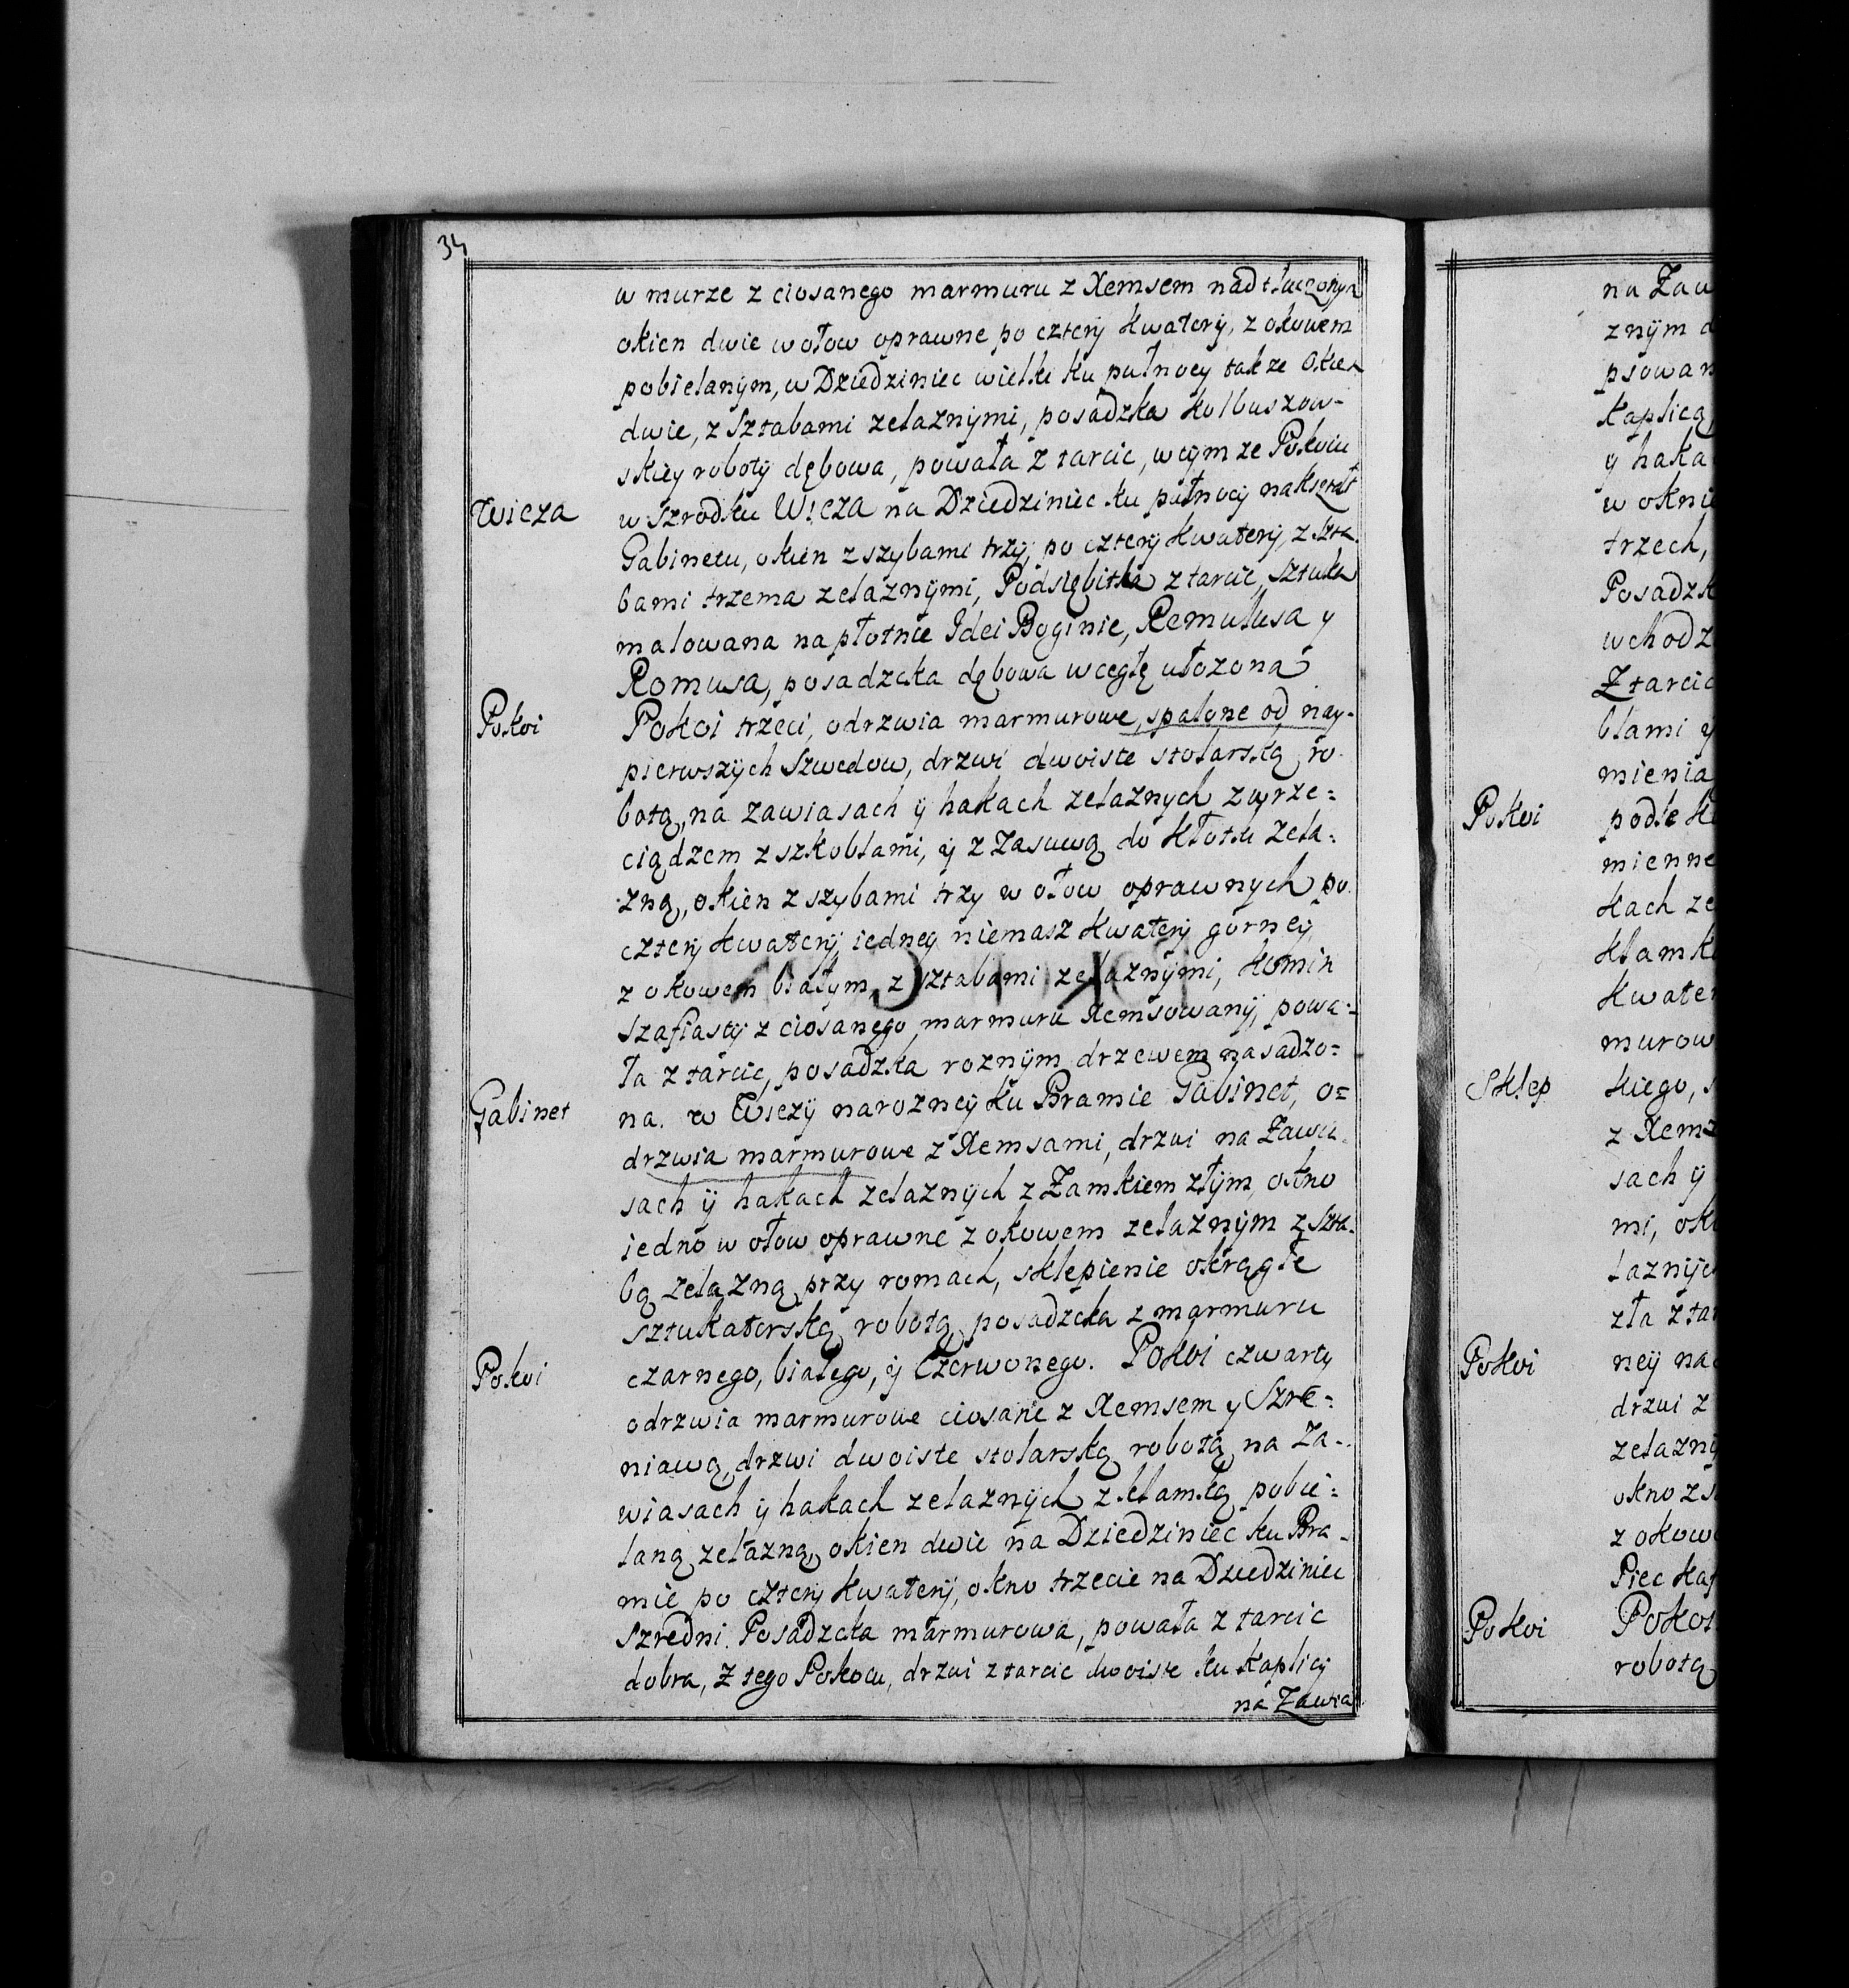 34
w murze z ciosanego marmuru z Xemsem nadtłuczonym
okien dwie wołow oprawne po cztery kwatery, z okowem
pobielanym, w Dziedziniec wielki ku pułnocy takze Okien
dwie, z Sztabami zelaznymi, posadzka kolbuszow-
skiey roboty dębowa, powała z tarcic, w tym ze Pokoiu
Wieza
w Szrodku Wieza na Dziedziniec ku pułnocy nakształt
Gabinetu, okien z szybami trzy, po cztery kwatery, z szta
bami trzema zelaznymi, Podsiębitka z tarcic, sztuka
malowana na płotnie Idei Boginie, Remulusa y
Romusa, posadzcka dębowa w cegłę ułozona
Pokoi
Pokoi trzeci, odrzwia marmurowe, spalone od nay-
pierwszych Szwedow, drzwi dwoiste stolarską ro-
botą, na zawiasach y hakach zelaznych z wrze=
ciądzem z szkoblami, y z Zasuwą do kłotki zela=
zną, okien z szybami trzy w ołow oprawnych po
cztery kwatery, iedney niemasz kwatery gorney,
z okowem białym, z sztabami zelaznymi, komin
Szafiasty z ciosanego marmuru Xemsowany, powa=
ła z tarcic, posadzka roznym drzewem nasadzo=
Gabinet
na. w Wiezy narozney ku Bramie Gabinet, o=
drzwia marmurowe z Xemsami, drzwi na Zawia
sach y hakach zelaznych z Zamkiem złym, okno
iedno w ołow oprawne z okowem zelaznym z szta-
bą zelazną przy romach, sklepienie okrągłe
sztukatorską robotą, posadzcka z marmuru
Pokoi
czarnego, białego, y Czerwonego. Pokoi czwarty
odrzwia marmurowe ciosane z Xemsem y Szre=
niawą, drzwi dwoiste stolarską robotą na Za-
wiasach y hakach zelaznych z klamką pobie=
laną zelazną, okien dwie na Dziedziniec ku Bra-
mie po cztery kwatery, okno trzecie na Dziedziniec
Szredni. Posadzcka marmurowa, powała z tarcic
dobra, Z tego Pokoiu, drzwi z tarcic dwoiste ku Kaplicy
na Zawia
na Zaw
znym
psowan
Kaplicą
y haka
w okni
trzech,
Posadzk
wchodz
Z tarcic
blami y
mienia
Pokoi
podle
mienne
kach ze
klamk
kwater
murow
Sklep
kiego,
z Xems
sach y
mi, ok
laznych
zła z tar
Pokoi
ney na
drzwi z
zelazny
okno z
z okow
Piec kaf
Pokoi
Pokoi
robotą